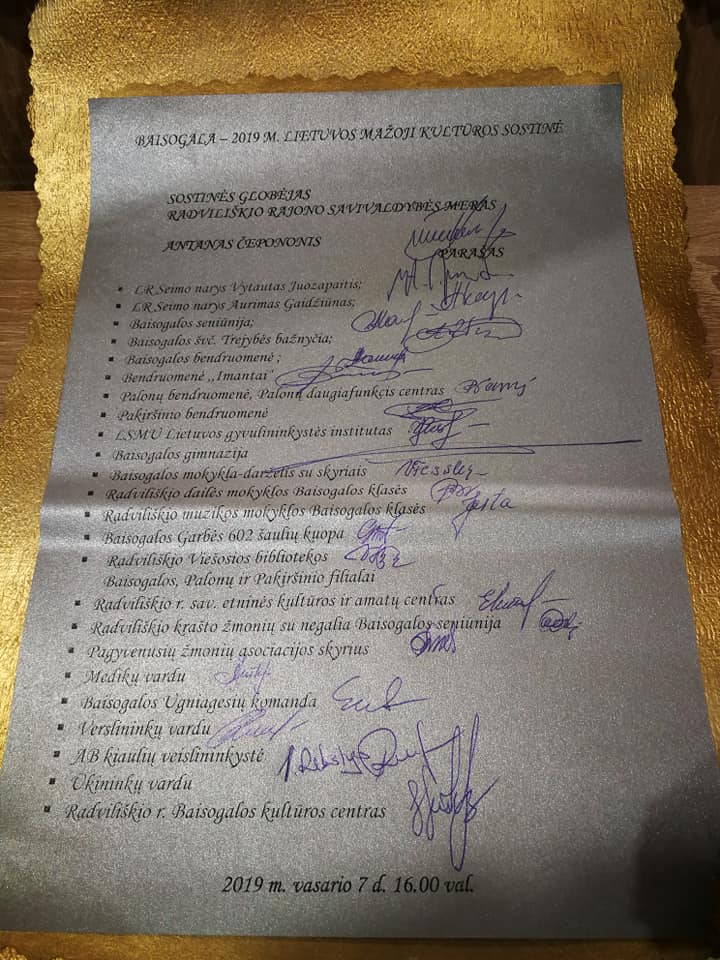 BAISOGALA – 2019 M. LIETUVOS MAŽOJI KULTŪROS SOSTINĖ
SOSTINĖS GLOBĖJAS
RADVILIŠKIO RAJONO SAVIVALDYBĖS MERAS
ANTANAS ČEPONONIS PARAŠAS
LR Seimo narys Vytautas Juozapaitis;
LR Seimo narys Aurimas Gaidžiūnas;
Baisogalos seniūnija;
Baisogalos švč. Trejybės bažnyčia;
Baisogalos bendruomenė ;
Bendruomenė ,,Imantai"
Palonų bendruomenė, Palonų daugiafunkcis centras
Pakiršinio bendruomenė
LSMU Lietuvos gyvulininkystės institutas
Baisogalos gimnazija
Baisogalos mokykla-darželis su skyriais
Radviliškio dailės mokyklos Baisogalos klasės
Radviliškio muzikos mokyklos Baisogalos klasės
Baisogalos Garbės 602 šaulių kuopa
Radviliškio Viešosios bibliotekos
Baisogalos, Palonų ir Pakiršinio filialai
Radviliškio r. sav. etninės kultūros ir amatų centras
Radviliškio krašto žmonių su negalia Baisogalos seniūnija
Pagyvenusių žmonių asociacijos skyrius
Medikų vardu
Baisogalos Ugniagesių komanda
Verslininkų vardu
AB kiaulių veislininkystė
Ūkininkų vardu
Radviliškio r. Baisogalos kultūros centras
2019 m. vasario 7 d. 16.00 val.